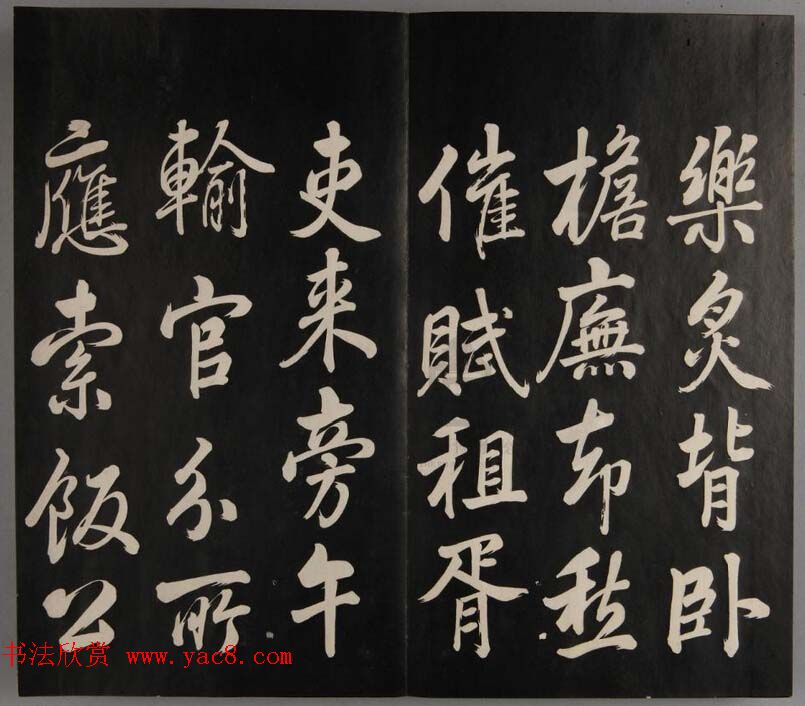 樂炙背卧
檐廡却愁
催賦租胥
吏来旁午
輸官分所
應索飯公
书法欣赏 www.yac8.com